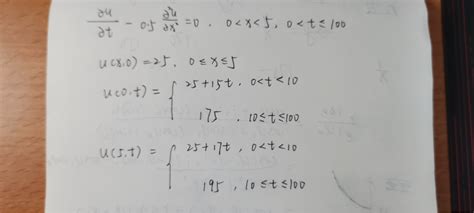 ∂u/∂t - 0.5 ∂²u/∂x² = 0 , 0<x<5, 0<t≤100
u(x,0)=25, 0≤x≤5
u(0,t)= { 25+15t, 0<t<10
175, 10≤t≤100
u(5,t)= { 25+17t, 0<t<10
195, 10≤t≤100